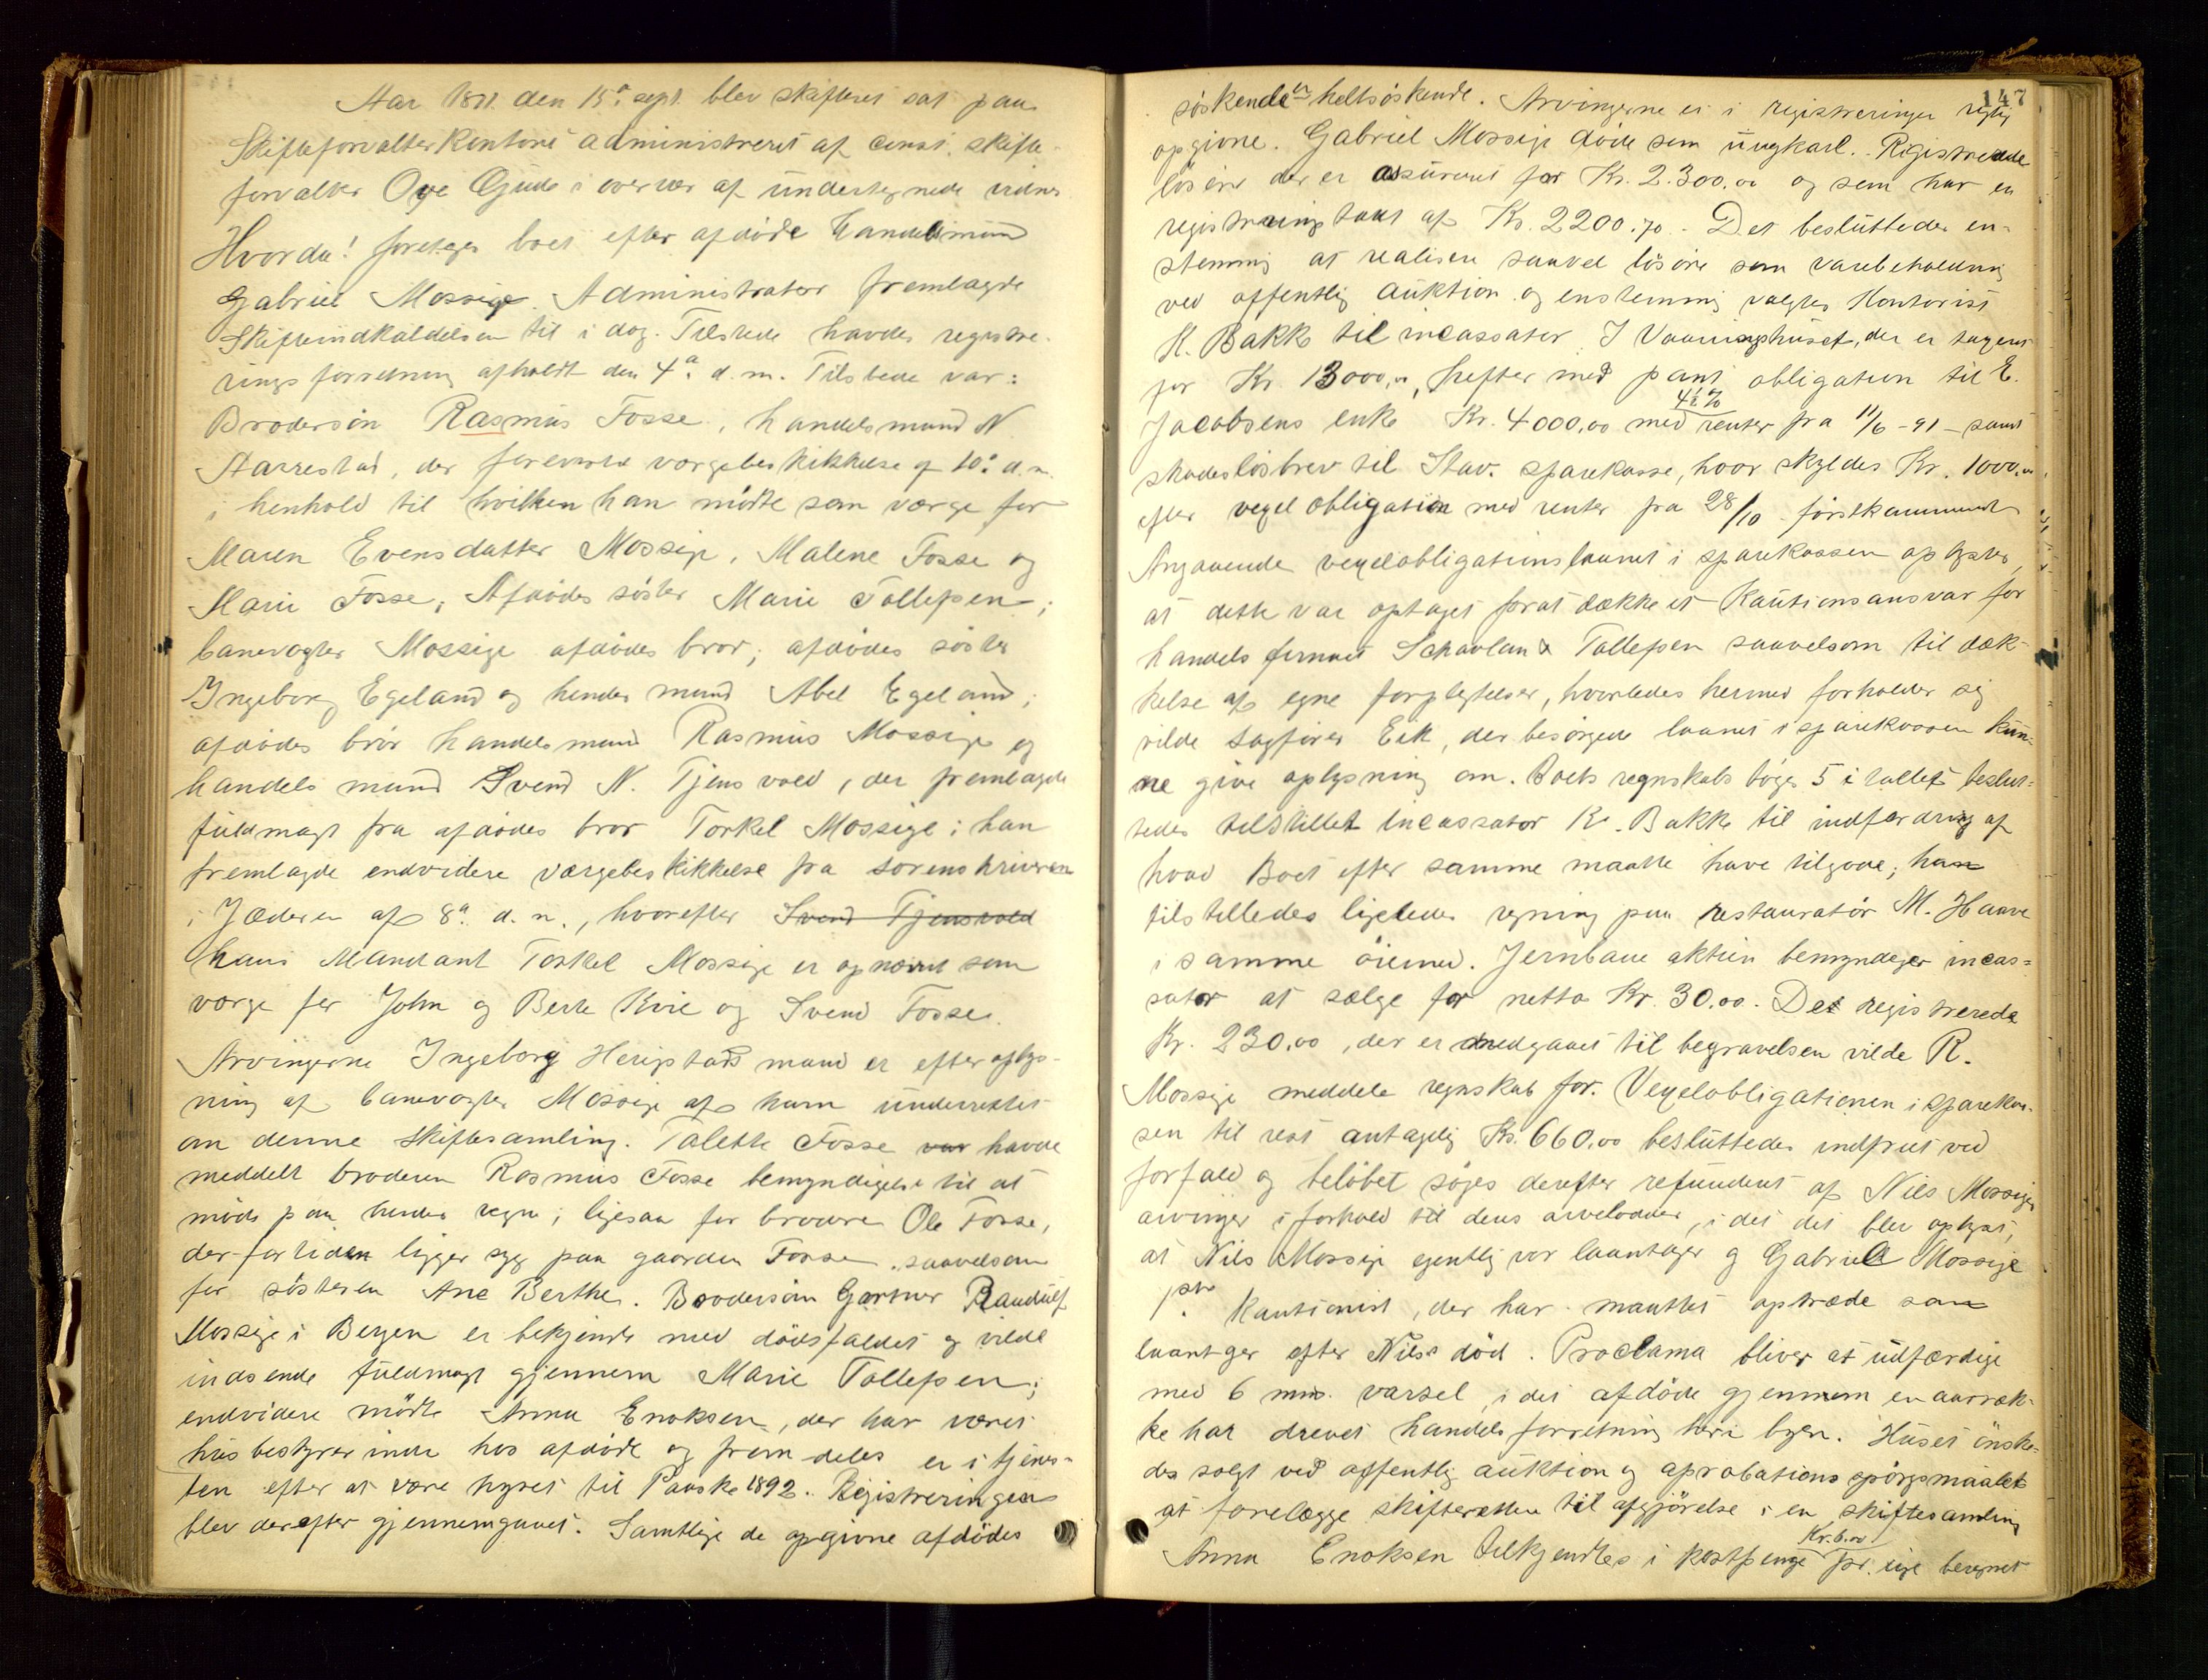 Aar 1891 den 15de sept. blev skifteret sat paa
Skifteforvalterkontoret administreret af const. skifte-
forvalter Ove Gude i overvær af undertegnede vidner
Hvorda! foretoges boet efter afdøde handelsmand
Gabriel Mossige. Administrator fremlagde
Skifteindkaldelsen til i dag. Tilstede havdes registre-
ringsforretning afholdt den 4de d.m. Tilstede var:
Brodersøn Rasmus Fosse, handelsmand N.
Aarrestad, der foreviste værgebeskikkelse af 10de d.m.
i henhold til hvilken han mødte som værge for
Maren Evensdatter Mossige, Malene Fosse og
Marie Fosse; Afdødes søster Marie Tollefsen;
banevogter Mossige afdødes bror; afdødes søster
Ingeborg Egeland og hendes mand Abel Egeland;
afdødes bror handelsmand Rasmus Mossige og
handelsmand Svend N. Tjensvold, der fremlagde
fuldmagt fra afdødes bror Torkel Mossige; han
fremlagde endvidere værgebeskikkelse fra sorenskriveren
i Jæderen af 8de d.m., hvorefter Svend Tjensvold
hans Mandant Torkel Mossige er opnævnt som
værge for John og Berte Kvie og Svend Fosse.
Arvingerne Ingeborg Herigstads mand er efter oplys-
ning af banevogter Mossige af ham underrettet
om denne skiftesamling. Talette Fosse var havde
meddelt broderen Rasmus Fosse bemyndigelse til at
møde paa hendes vegne; ligesaa for broderen Ole Fosse,
der for tiden ligger syg paa gaarden Fosse, saavelsom
for søsteren Ane Berthe. Brodersøn Gartner Randulf
Mossige i Bergen er bekjendt med dødsfaldet og vilde
indsende fuldmagt gjennem Marie Tollefsen;
endvidere mødte Anna Enoksen, der har været
husbestyrerinde hos afdøde og fremdeles er i tjenes-
ten efter at være hyret til Paaske 1892. Registreringen
blev derefter gjennemgaaet. Samtlige de opgivne afdødes
147
søskende er helsøskende. Arvingerne er i registreringen rigtig
opgivne. Gabriel Mossige døde som ungkarl. Registrerede
løsøre der er assureret for Kr. 2.300,00 og som har en
registreringstaxt af Kr. 2200.70. Det besluttedes en-
stemmig at realisere saavel løsøre som varebeholdning
ved offentlig auktion og enstemmig valgtes Kontorist
K. Bakke til incassator. I Vaaningshuset, der er taxeret
for Kr. 13000,00, hefter med pant obligation til E.
Jacobsens enke Kr. 4000,00 med 4½ % renter fra 11/6 - 91 - samt
skadesløsbrev til Stav. sparekasse, hvor skyldes Kr. 1000,00
efter vexelobligation med renter fra 28/10 førstkommende
Angaaende vexelobligationslaanet i sparekassen oplystes,
at dette var optaget forat dække et Kautionsansvar for
handelsfirmaet Schavland & Tollefsen saavelsom til dæk-
kelse af egne forpligtelser, hvorledes hermed forholder sig
vilde sagfører Eik, der besørgede laanet i sparekassen kun-
ne give oplysning om. Boets regnskabsbøger 5 i tallet beslut-
tedes tilstillet incassator K. Bakke til indfordring af
hvad Boet efter samme maatte have tilgode; han
tilstilledes ligeledes regning paa restauratør M. Haave
i samme øiemed. Jernbaneaktien bemyndiges incas-
sator at sælge for netto Kr. 30.00. Det registrerede
Kr. 230.00, der er medgaaet til begravelsen vilde R.
Mossige meddele regnskab for. Vexelobligationen i sparekas-
sen til rest antagelig Kr. 660.00 besluttedes indfriet ved
forfald og beløbet søges derefter refunderet af Nils Mossiges
arvinger i forhold til deres arvelodder, i det det blev oplyst,
at Nils Mossige egentlig var laantager og Gabriel Mossige
1ste Kautionist, der har maattet optræde som
laantager efter Nils's død. Proclama bliver at udfærdige
med 6 mds. varsel, i det afdøde gjennem en aarræk-
ke har drevet handelsforretning her i byen. Huset ønske-
des solgt ved offentlig auktion og aprobationsspørgsmaalet
at forelægge skifteretten til afgjørelse i en skiftesamling
Anna Enoksen tilkjendtes i kostpenge Kr. 6.00 pr. uge beregnet